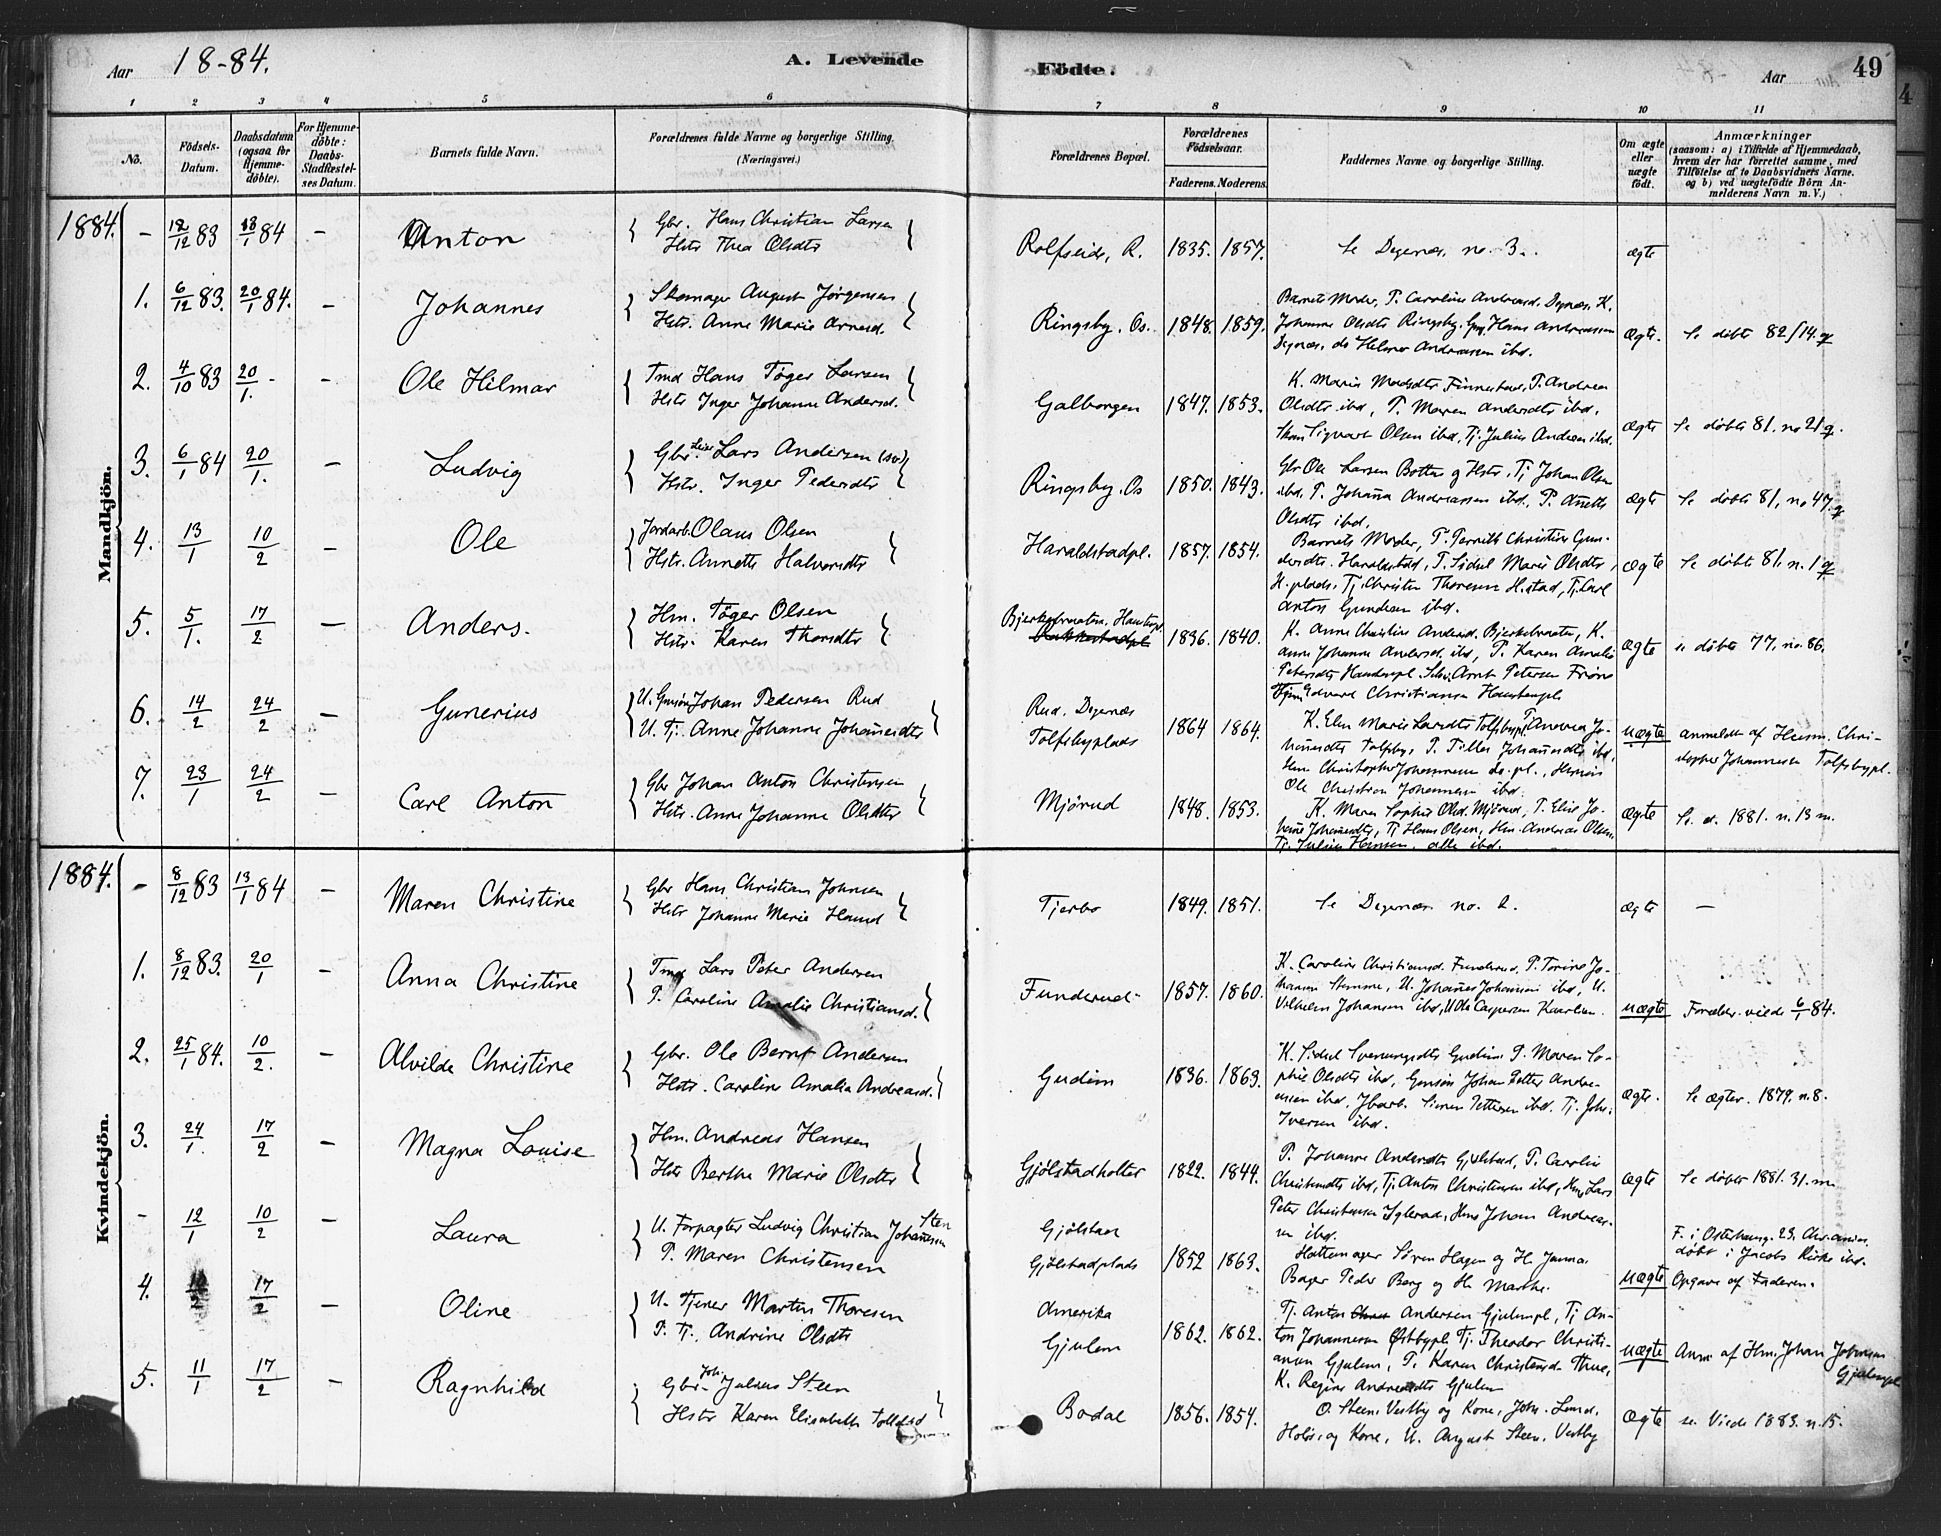 Aar 18-84. A. Levende Födte. Aar 49
1 2 3 4 5 6 7 8 9 10 11
No. Födsels-Datum. Daabsdatum (ogsaa for Hjemme-döbte). For Hjemme-döbte: Daabs-Stadfæstel-ses Datum. Barnets fulde Navn. Forældrenes fulde Navne og borgerlige Stilling. (Næringsvei.) Forældrenes Bopæl. Forældrenes Födselsaar. Faderens. Moderens. Faddernes Navne og borgerlige Stilling. Om ægte eller uægte födt. Anmærkninger (saasom: a) i Tilfælde af Hjemmedaab, hvem der har forrettet samme, med Tilföielse af to Daabsvidners Navne. og b) ved uægtefödte Börn An-melderens Navn m. V.)
Mandkjön.
1884. - 12/12 83 13/1 84 - Anton
Gbr. Hans Christian Larsen
Hstr Thea Olsdtr
Rolfseide, R. 1835. 1857. Se Degernæs, no. 3. ægte
1. 6/12 83. 20/1 84. - Johannes
Skomager August Jørgensen
Hstr. Anne Marie Arnesd.
Ringsby, Os. 1848. 1859.
Barnets Moder, P. Caroline Andreasd. Degnæs, K.
Johanne Olsdtr Ringsby, Hans Andreassen
Degnæs, do Helmer Andreassen ibd.
Ægte. Se døbte 82/14. q
2. 4/10 83 20/1. - - Ole Hilmar
Tmd Hans Tøger Larsen
Hstr Inger Johanne Andersd.
Galborgen 1847. 1853.
K. Maria Madsdtr Finnestad, P. Andrea
Olsdtr ibd, P. Maren Andersdtr ibd,
Sigvart Olsen ibd, Tj. Julius Andersen ibd.
Ægte Se døbte 81. no 21 q.
3. 6/1 84 20/1. - Ludvig
Gbr. Lars Andersen
Hstr. Inger Pedersdtr
Ringsby, Os 1850. 1843.
Gbr Ole Larsen Botten og Hstr, Tj Johan Olsen
ibd. P. Johanna Andreassen ibd., P. Anette
Olsdtr ibd.
Ægte Se døbte 81, no 47. q
4. 13/1 10/2 - Ole
Jordarb. Olaus Olsen
Hstr. Annette Halvorsdtr
Haraldstadpl. 1857. 1854.
Barnets Moder, P. Pernille Christine Gun-
dersdtr. Haraldstad, P. Sidsel Marie Olsdtr,
H. plads, Tj. Christen Thoresen H.stad, Tj. Carl
Anton Gundersen ibd.
Ægte Se døbte 81. n. 1 q
5. 5/1. 17/2 - Anders.
Hm. Tøger Olsen
Hstr. Karen Thorsdtr
Bjerkebraaten, 1836. 1840.
K. Anne Christine Andersd. Bjerkebraaten, K.
Anne Johanne Andersd. ibd, P. Karen Amalie
Petersdtr Arnt Petersen
Edvard Christiansen
Ægte se døbte 77. no. 86.
6. 14/2 24/2 - Gunerius
U. Johan Pedersen Rud
U. Tj. Anne Johanne Johannesdtr
Rud. Degernæs
Tolfsbyplads 1864 1864.
K. Elen Marie Larsdtr Tolfsbypl. P. Andrea Jo-
hannesdtr Tolfsby, P. Tilla Johannesdtr ibd,
Hm Christopher Johannesen do. pl.,
Ole Christian Johannesen ibd.
uægte anmeldt af Husm. Chri-
stopher Johannesen Tolfsbypl.
7. 23/1 24/2 - Carl Anton
Gbr Johan Anton Christensen
Hstr. Anne Johanne Olsdtr
Mjørud 1848. 1853.
K. Maren Sophie Olsd. Mjørud, P. Elise Jo-
hanne Johannesdtr, Tj Hans Olsen, Hm. Andreas Olsen,
Tj. Julius Hansen, alle ibd.
Ægte Se. d. 1881. n. 13 m.
Kvindekjön.
1884. - 8/12 83 13/1 84 - Maren Christine
Gbr Hans Christian Johnsen
Hstr Johanne Marie Hansd
Tjerbo 1849. 1851. Se Degernæs no. 2. Ægte -
1. 8/12 83. 20/1 - Anna Christine
Tmd Lars Peter Andersen
P. Caroline Amalie Christiansd.
Funderud 1857. 1860.
K. Caroline Christiansd. Funderud, P. Torine Jo-
hansen Stemme, U. Johannes Johansen ibd, U.
Vilhelm Johansen ibd, U Ole Caspersen
uægte Forældr. viede 6/1 84.
2. 25/1 84. 10/2. - Alvilde Christine
Gbr. Ole Bernt Andersen
Hstr. Caroline Amalia Andreasd.
Gudim 1836. 1863.
K. Sidsel Svenungsdtr Gudim P. Maren So-
phie Olsdtr ibd, Johan Petter Andre-
assen ibd, Jbarb. Simen Pettersen ibd. Tj. Johs.
Iversen ibd.
Ægte. Se ægtev. 1879. n. 8.
3. 24/1. 17/2 - Magna Louise
Hm. Andreas Hansen
Hstr Berthe Marie Olsdtr
Gjølstadholter 1822. 1844.
P. Johanne Andersdtr Gjølstad, P. Caroline
Christensdtr ibd, Tj. Anton Christensen ibd, Lars
Peter Christensen Iglerød, Johan Andreas-
sen ibd.
Ægte Se døbte 1881. 31. m.
- 12/1 10/2 - Laura
U. Forpagter Ludvig Christian Johannesen Sten
P. Maren Christensen
Gjølstad
Gjølstadplads 1852 1863.
Hattemager Søren Hagen og H. Janna.
Bager Peder Berg og H. Marthe.
uægte F. i Osterhausg. 23, Chr.ania.
døbt i Jacobs Kirke ibd.
Opgave af Faderen.
4. 17/2 - Oline
U. Tjener Martin Thoresen
P. Tj. Andrine Olsdtr
Amerika
Gjulem 1862. 1862.
Tj. Anton Andersen Gjulempl, Tj An-
ton Johannesen Østbypl. Tj. Theodor Christi-
ansen Gjulem, P. Karen Christensd. Thue,
K. Regine Andreasdtr Gjulem
uægte Anm. af Hm. Johan Johnsen
Gjulempl
5. 11/1 17/2 - Ragnhild
Gbr. Joh. Julius Steen
Hstr Karen Elisabeth Tollefsd
Bodal 1856. 1854.
O. Steen, Vestby og Kone, Johs. Lund,
og Kone, U. August Steen, Vestby
Ægte se. Viede 1883. n. 15.